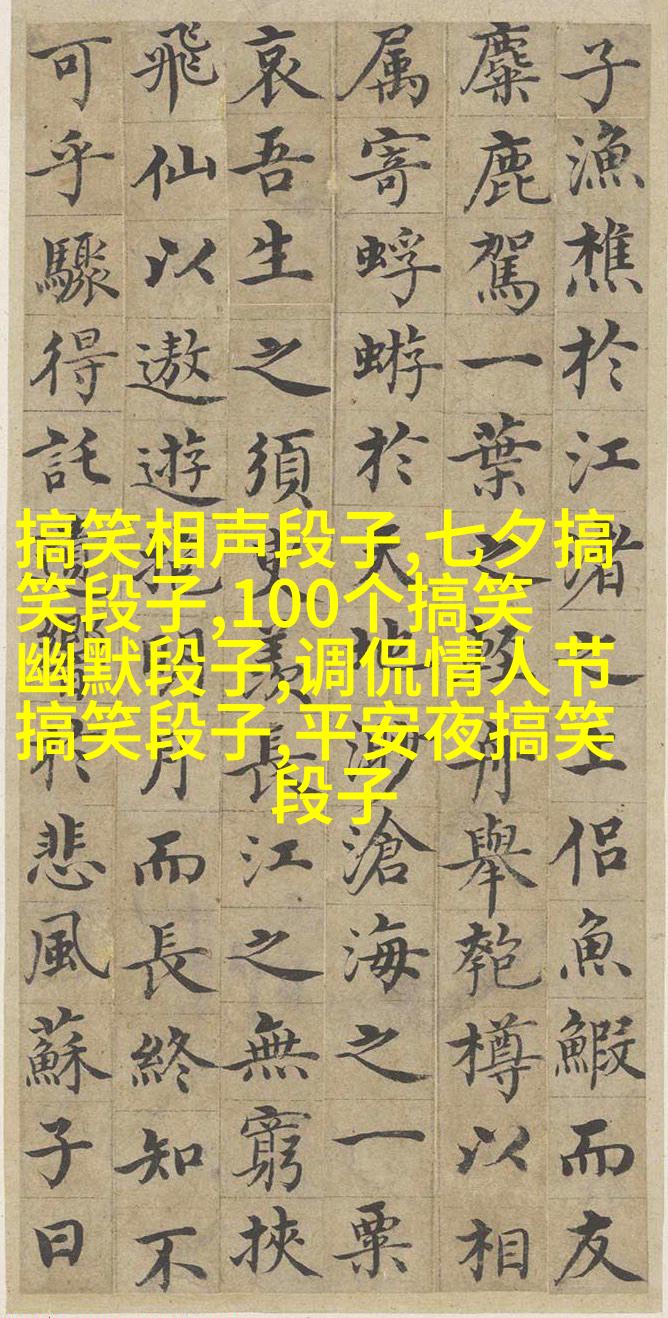 子漁樵於江渚之上侶魚鰕而友
麋鹿駕一葉之舟舉匏樽以相
属寄蜉蝣於天地渺滄海之一粟
哀吾生之須臾羨長江之無窮挾
飛仙以遨遊抱明月而長終知不
可乎驟得託遺響於悲風蘇子曰
搞笑相声段子,七夕搞
笑段子,100个搞笑
幽默段子,调侃情人节
搞笑段子,平安夜搞笑
段子